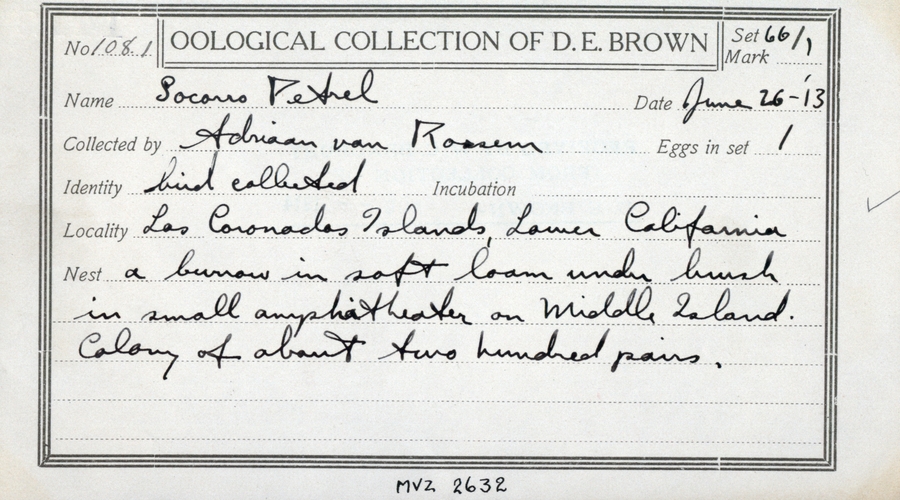 No 108.1 OOLOGICAL COLLECTION OF D. E. BROWN Set 66/1
Mark
Name Socorro Petrel Date June 26-'13
Collected by Adriaan van Rossem Eggs in set 1
Identity bird collected Incubation
Locality Los Coronados Islands, Lower California
Nest a burrow in soft loam under brush
in small amphitheater on Middle Island.
Colony of about two hundred pairs.
MVZ 2632